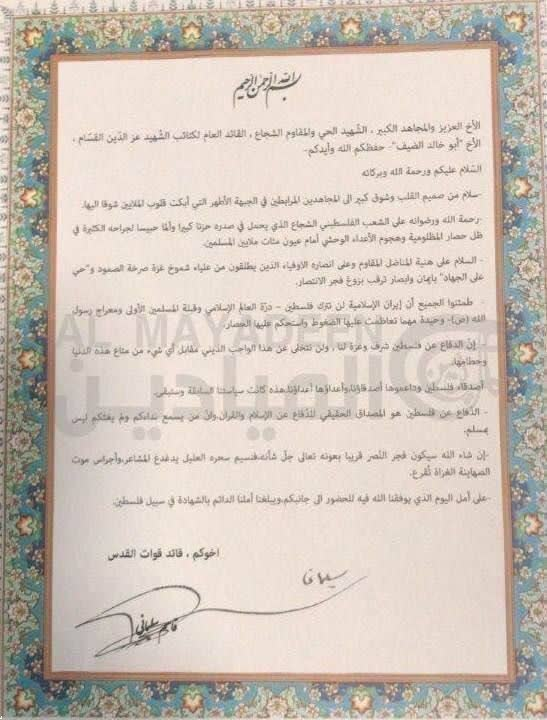 بسم الله الرحمن الرحيم
الأخ العزيز والمجاهد الكبير ، الشهيد الحي والمقاوم الشجاع ، القائد العام لكتائب الشهيد عز الدين القسام ،
الأخ "أبو خالد الضيف"- حفظكم الله وأيدكم-
السلام عليكم ورحمة الله وبركاته
-سلام من صميم القلب وشوق كبير الى المجاهدين المرابطين في الجبهة الأطهر التي أبكت قلوب الملايين شوقا اليها.
-رحمة الله ورضوانه على الشعب الفلسطيني الشجاع الذي يحمل في صدره حزنا كبيرا وألما حبيسا لجراحه الكثيرة في
ظل حصار المظلومية وهجوم الأعداء الوحشي أمام عيون مئات ملايين المسلمين.
- السلام على هنية المناضل المقاوم وعلى انصاره الاوفياء الذين يطلقون من علياء شموخ غزة صرخة الصمود و"حي
على الجهاد" بإيمان وابصار ترقب بزوغ فجر الانتصار.
- طمئنوا الجميع أن إيران الإسلامية لن تترك فلسطين – درّة العالم الإسلامي وقبلة المسلمين الأولى ومعراج رسول
الله (ص)- وحيدة مهما تعاظمت عليها الضغوط واستحكم عليها الحصار.
- إنّ الدفاع عن فلسطين شرف وعزة لنا ، ولن نتخلى عن هذا الواجب الديني مقابل أي شيء من متاع هذه الدنيا
وحطامها.
أصدقاء فلسطين وداعموها أصدقاؤنا،وأعداؤها أعداؤنا،هذه كانت سياستنا السابقة وستبقى.
- الدّفاع عن فلسطين هو المصداق الحقيقي للدّفاع عن الإسلام والقرآن،وأنّ من يسمع نداءكم ولم يغثكم ليس
بمسلم.
-إن شاء الله سيكون فجر النّصر قريبا بعونه تعالى جلّ شأنه،فنسيم سحره العليل يدغدغ المشاعر،وأجراس موت
الصهاينة الغزاة تُقرع.
-على أمل اليوم الذي يوفقنا الله فيه للحضور الى جانبكم،ويبلغنا أملنا الدائم بالشهادة في سبيل فلسطين.
اخوكم ، قائد قوات القدس
قاسم سليماني
AL MAYADEEN
الميادين